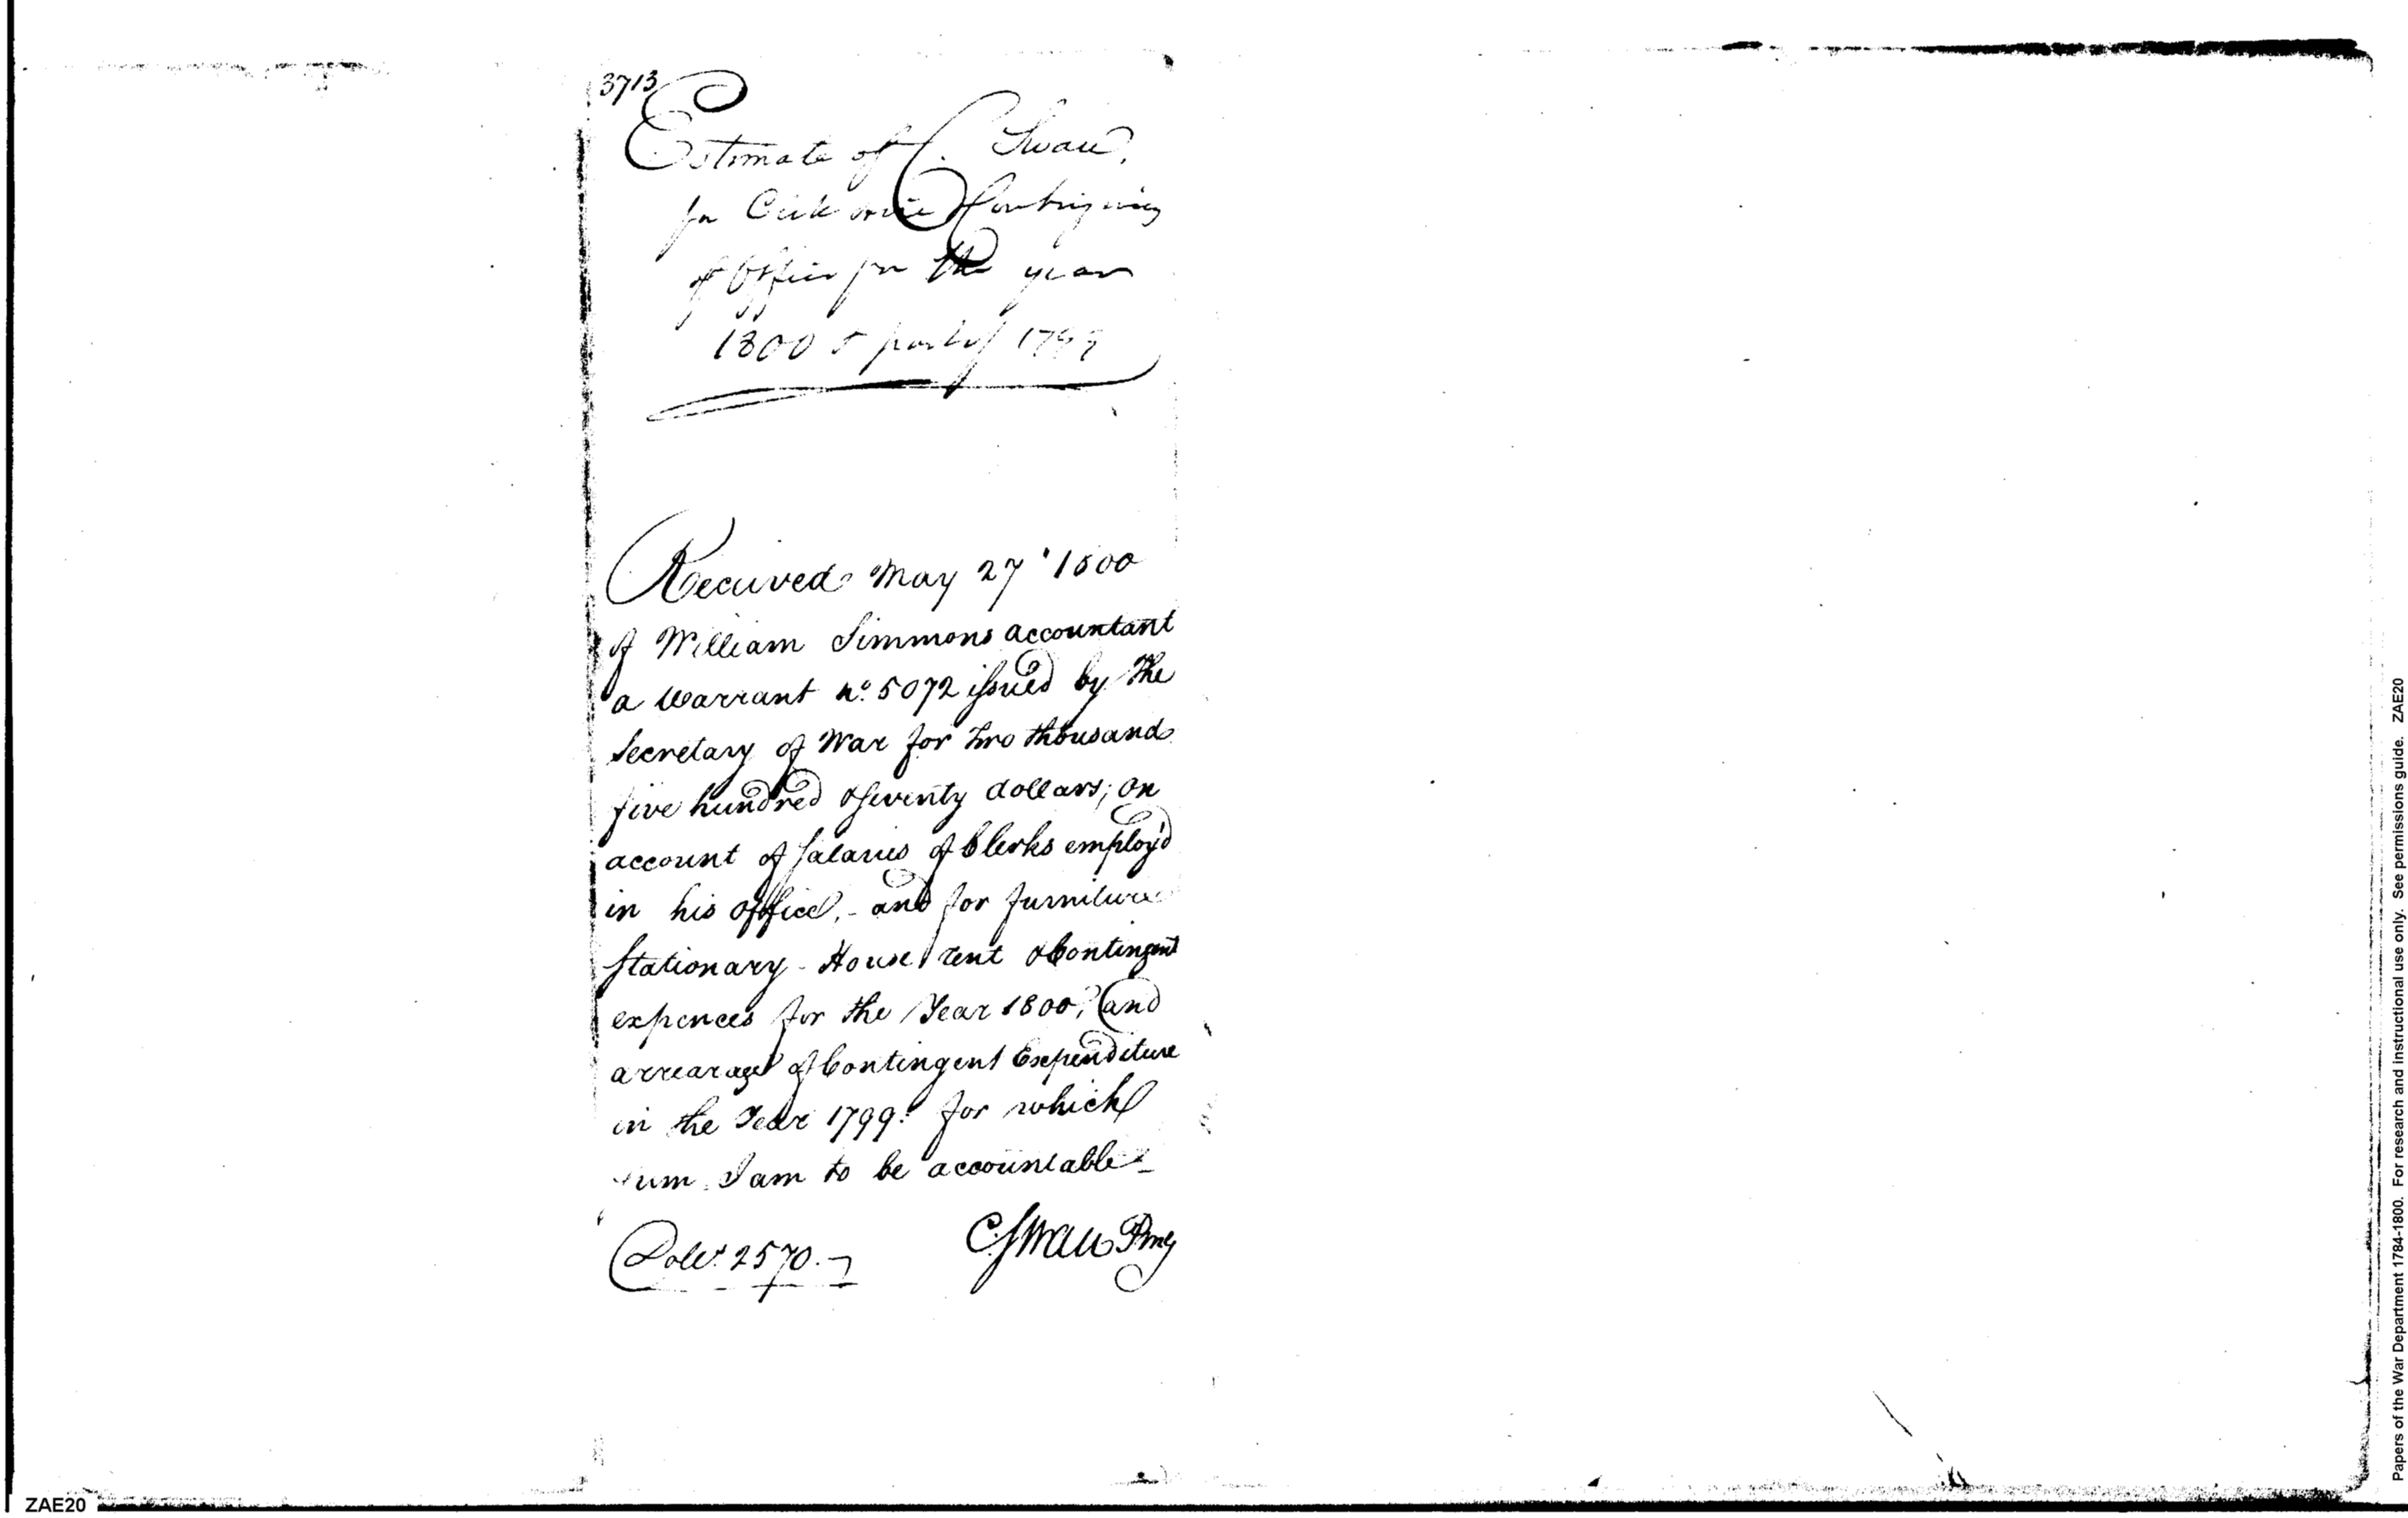 3713
Estimate of C. Swan,
for Clerk hire & Contingencies
of Office for the year
1800 & part of 1799
Received May 27 1800
of William Simmons accountant
a Warrant No. 5072 issued by the
Secretary of War for two thousand
five hundred & seventy dollars; on
account of Salaries of Clerks employ'd
in his office, - and for furniture
Stationary - House rent & Contingent
expences for the Year 1800, and
arrearage of Contingent Expenditure
in the Year 1799: for which
sum I am to be accountable -
Dolls. 2570.-
C Swan Pmg
ZAE20
Papers of the War Department 1784-1800. For research and instructional use only. See permissions guide. ZAE20